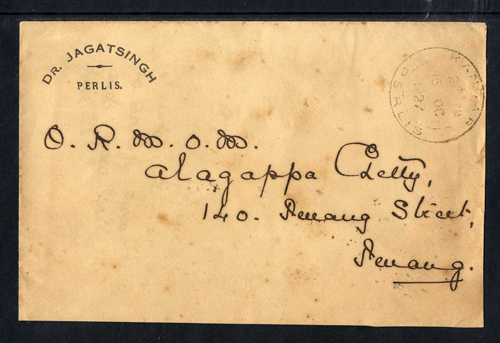 DR. JAGATSINGH
PERLIS.
KANGAR
PERLIS
O. R. M. O. M.
Alagappa Chetty,
140. Penang Street,
Penang.